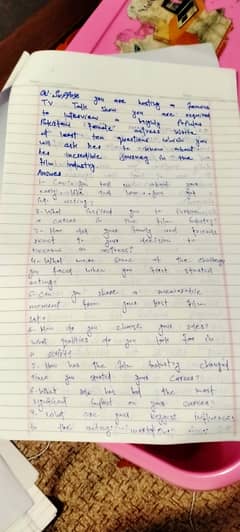 Q: Suppose you are hosting a famous
TV Talk Show you are required
to interview a hugely Popular
Pakistani female actress. Write
at least ten questions which you
will ask her to know about
her incredible journey in the
film industry.
Answer
1- Can you tell us about your
early life and how you got
into acting?
2- What inspired you to pursue
a career in the film industry?
3- How did your family and friends
react to your decision to
become an actress?
4- What were some of the challenges
you faced when you first started
acting?
5- Can you share a memorable
moment from your first film
set?
6- How do you choose your roles?
What qualities do you look for in
a script?
7- How has the film industry changed
since you started your career?
8- What has had the most
significant impact on your career?
9- What are your biggest influences
in the acting